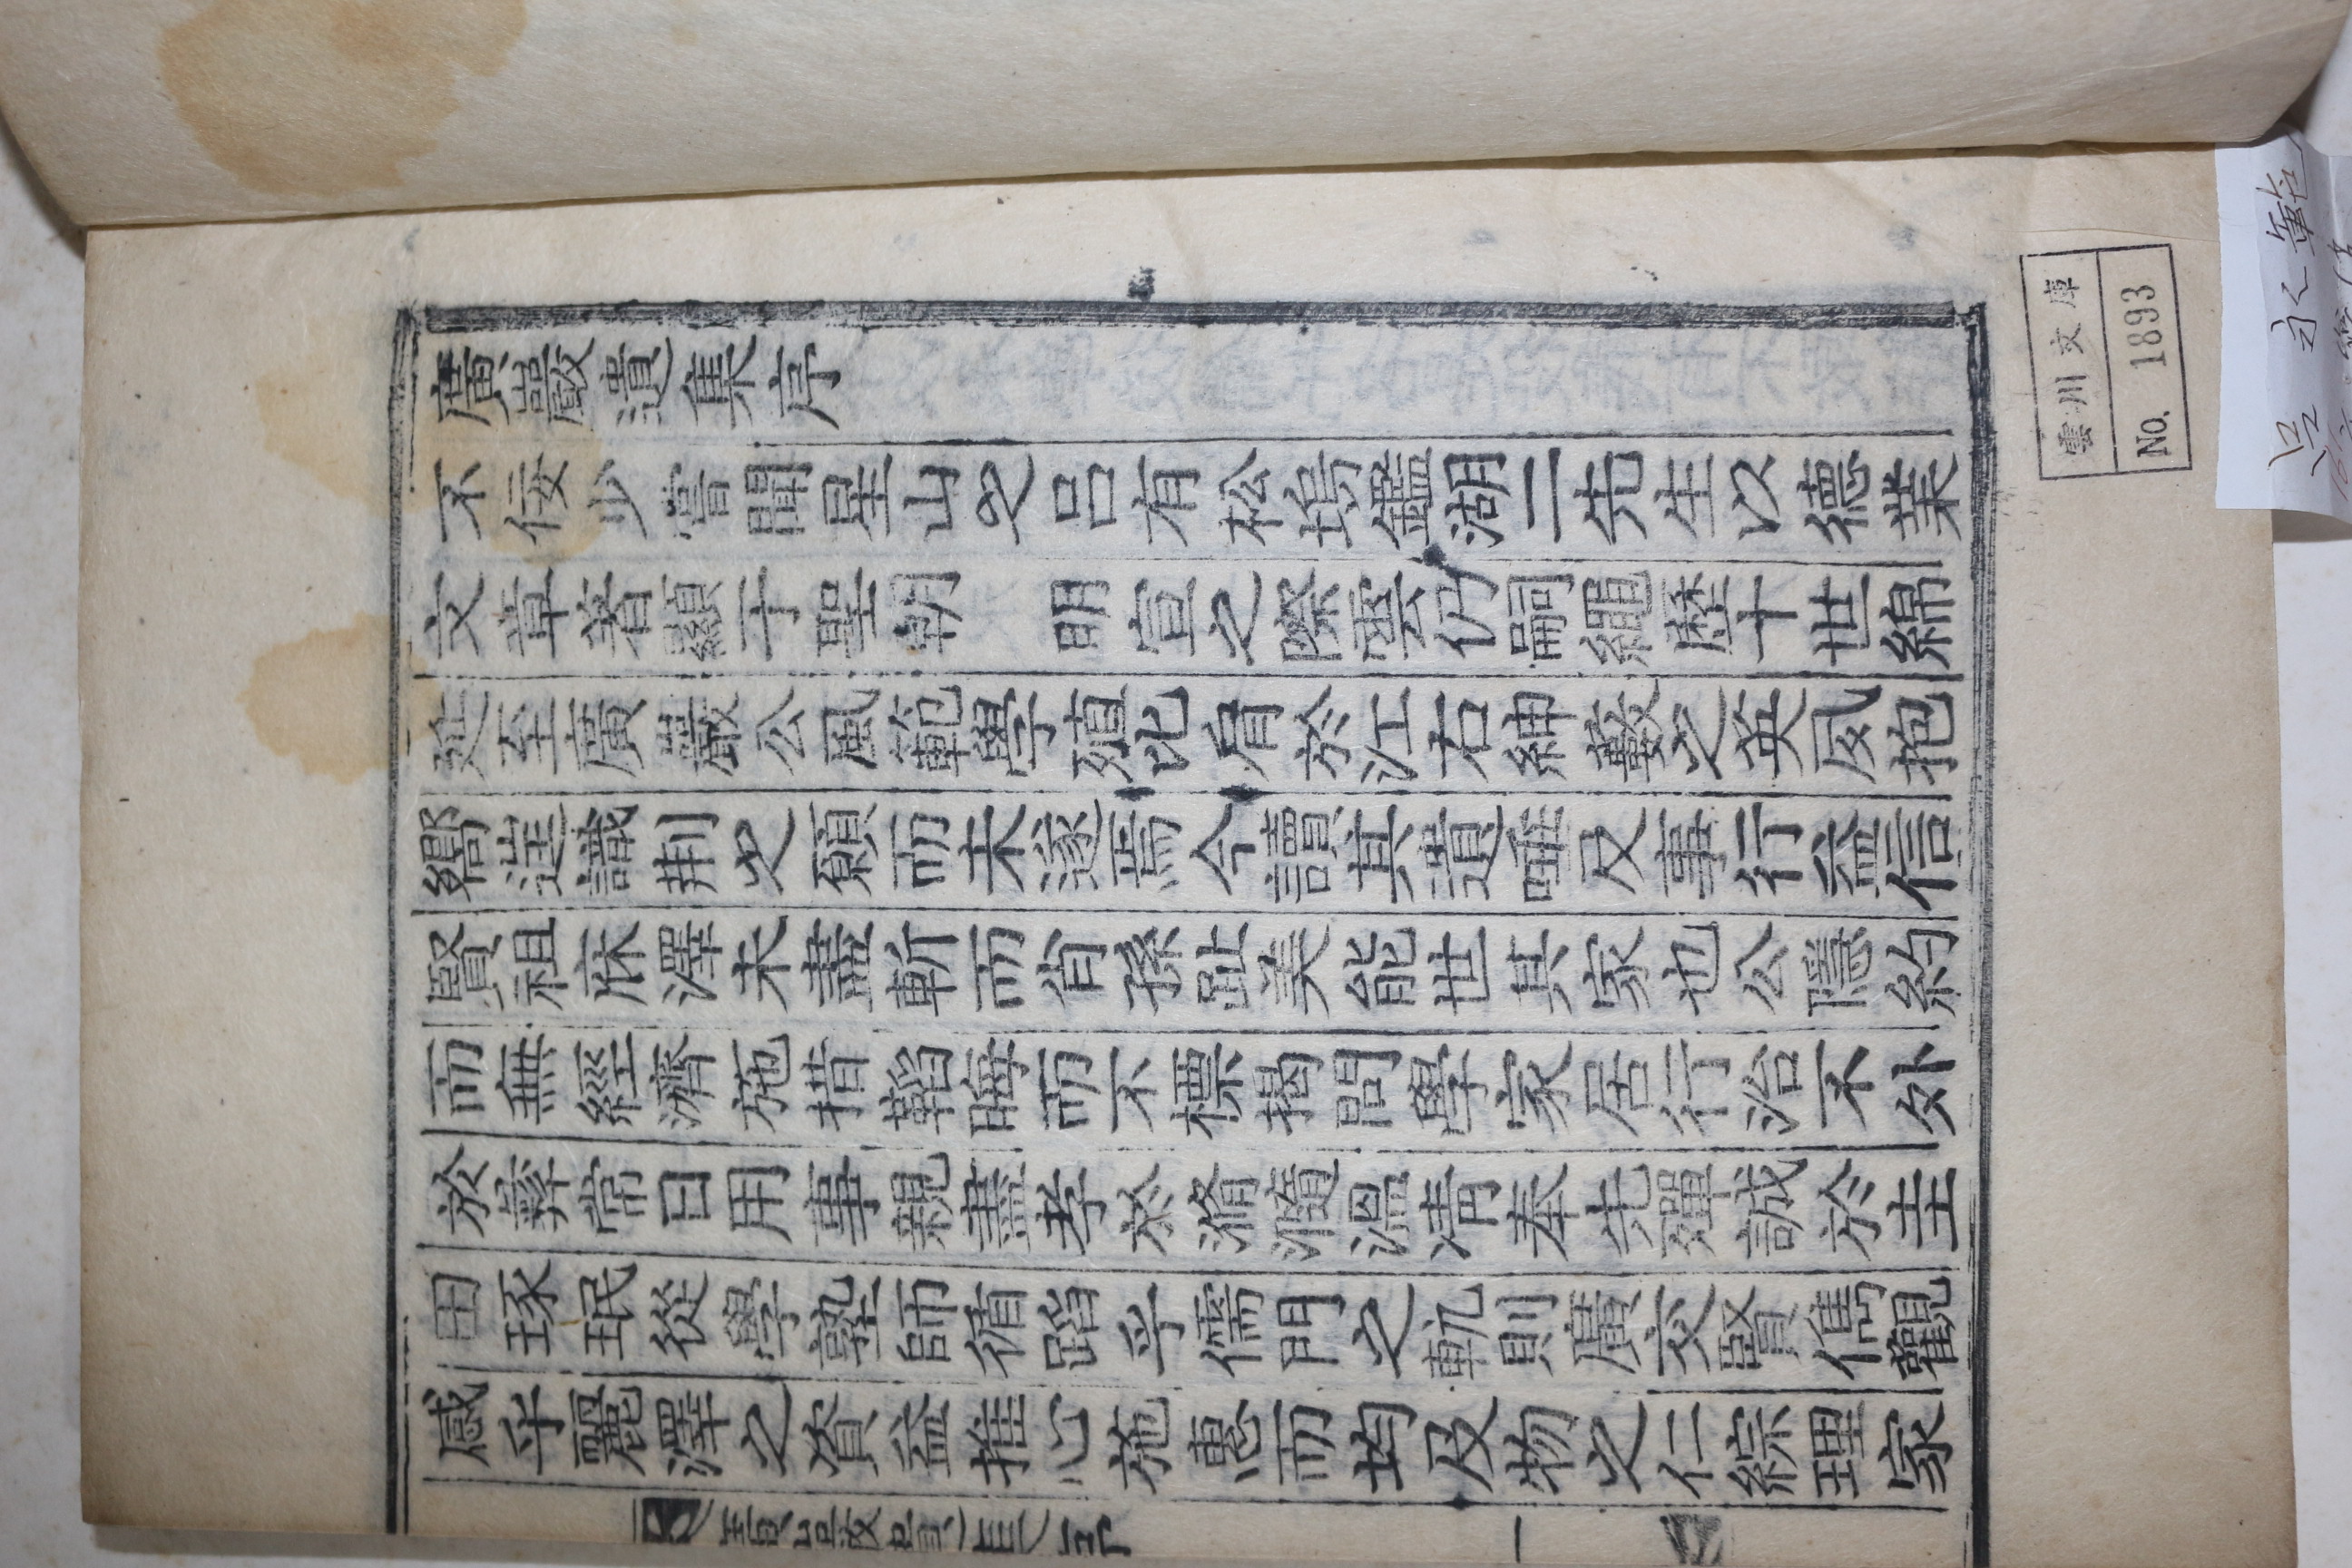 廣巖遺集序
不佞少嘗聞星山之呂有松塢鑑湖二先生以德業
文章著顯于聖朝 明宣之際雲仍嗣繩歷十世綿
延至廣巖公風範學殖比肩於江右紳藪之英夙抱
嚮逬識荆之願而未遂焉今讀其遺唾及事行益信
賢祖庥澤未盡斬而肖孫趾美能世其家也公隱約
而無經濟施措韜晦而不標揭問學家居行治不外
於彛常日用事親盡孝於滫瀡溫凊奉先殫誠於圭
田琢珉從學塾師循蹈乎儒門之軌則廣交賢儁觀
感乎麗澤之資益推心施惠而均及物之仁綜理家
廣巖遺集序
一
雲川文庫
No. 1893
呂永範